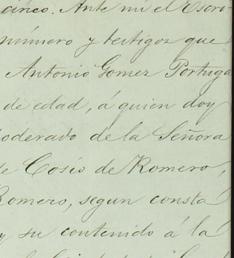 cinco. Ante mi el Escri-
número y testigos que
Antonio Gomez Portuga
de edad, á quien doy
poderado de la Señora
de Cosio de Romero,
Romero, segun consta
y su contenido á la